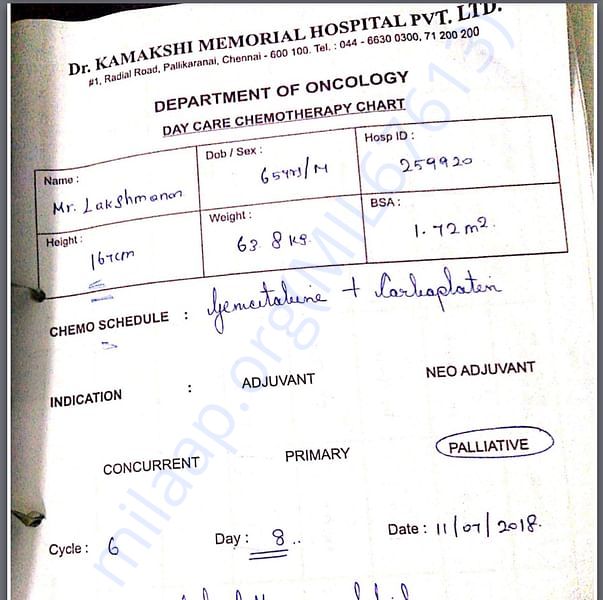 Dr. KAMAKSHI MEMORIAL HOSPITAL PVT. LTD.
#1, Radial Road, Pallikaranai, Chennai - 600 100. Tel. : 044 - 6630 0300, 71 200 200
DEPARTMENT OF ONCOLOGY
DAY CARE CHEMOTHERAPY CHART
Name : Mr. Lakshmanan
Dob / Sex : 65yrs/M
Hosp ID : 259920
Height : 167cm
Weight : 63.8 kg.
BSA : 1.72 m².
CHEMO SCHEDULE : Gemcitabine + Carboplatin
INDICATION : ADJUVANT NEO ADJUVANT
CONCURRENT PRIMARY PALLIATIVE
Cycle : 6 Day : 8 .. Date : 11/07/2018.
milaap.org(MIL67613)